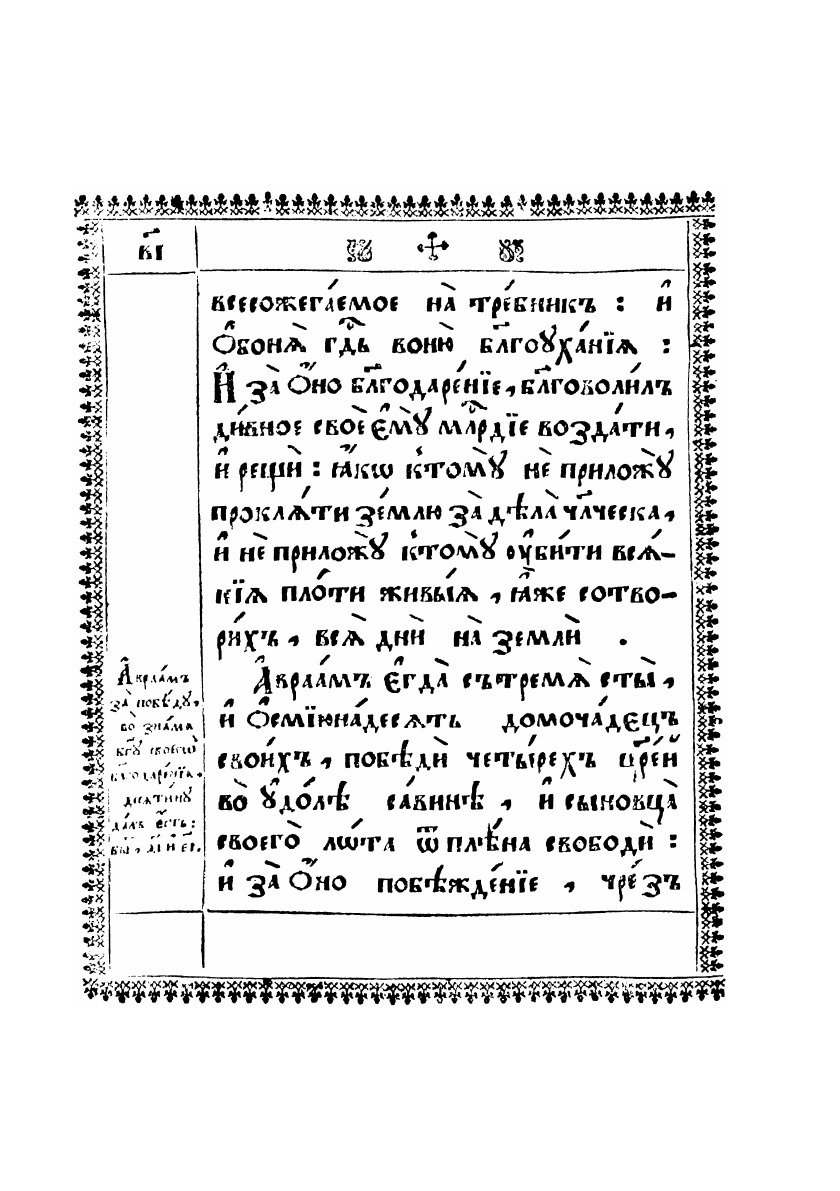 в҃і
всесожега́емое на̀ тре́бникъ : и҆
Ѻ҆боня̀ гд҇ь воню̀ бл҃гоꙋха́нїѧ :
И҆ за̀ Ѻ҆́но бл҃годаре́нїе, бл҃говоли́лъ
ди́вное своѐ є҆мꙋ̀ млⷭ҇рдїе возда́ти,
и҆ рещѝ : ꙗ҆́кѡ ктомꙋ̀ нѐ приложꙋ̀
проклѧ́ти зе́млю за̀ дѣла̀ чл҃ческа,
и҆ нѐ приложꙋ̀ ктомꙋ̀ ᲂу҆би́ти всѧ́–
кїѧ пло́ти живы́ѧ, ꙗ҆́же сотво–
ри́хъ, всѧ̀ днѝ на̀ землѝ .
А҆враа́мъ є҆гда̀ съ̀тремѧ̀ сты̀,
и҆ Ѻ҆смїю́на́десѧть домоча́дєцъ
свои́хъ, побѣдѝ четы́рехъ цр҃е́й
во̀ ꙋ҆до́лѣ са́винѣ, и҆ сыновца̀
своего̀ лѡ́та ѿ плѣ́на свободѝ :
и҆ за̀ Ѻ҆́но побѣжде́нїе, чре́зъ
А҆враа́мъ
за̀ побѣ́дꙋ,
во̀ зна́мѧ
бг҃ꙋ своегѡ̀
бл҃годаре́нїѧ,
десѧти́нꙋ
да́лъ є҆́сть :
бы҃, д҃і и҆ є҃і.